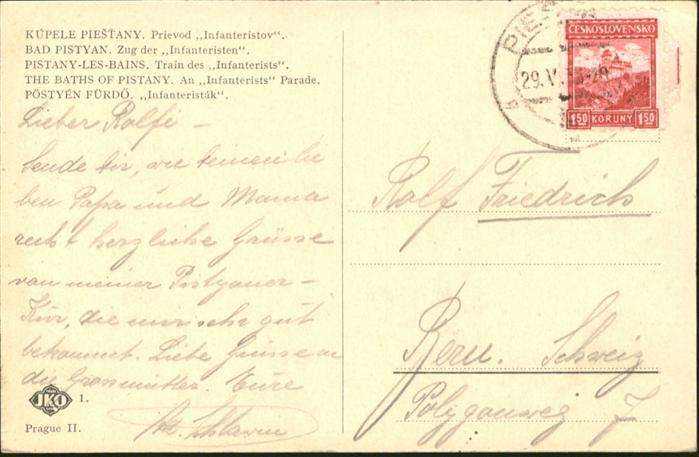 KÚPELE PIEŠŤANY. Prievod „Infanteristov“.
BAD PISTYAN. Zug der „Infanteristen“.
PISTANY-LES-BAINS. Train des „Infanterists“.
THE BATHS OF PISTANY. An „Infanterists“ Parade.
PÖSTYÉN FÜRDŐ. „Infanteristák“.
Lieber Rolfi –
Sende dir, wie deinen lie
ben Papa und Mama
recht herzliche Grüsse
von meiner Pistyaner-
Kur, die mir sehr gut
bekommt. Liebe Grüsse an
die Grossmutter. Eure
IKO 1.
Prague II.
PIEŠ
29.V
ČESKOSLOVENSKO
1.50 KORUNY 1.50
Rolf Friedrich
Bern. Schweiz
Polygonweg 7